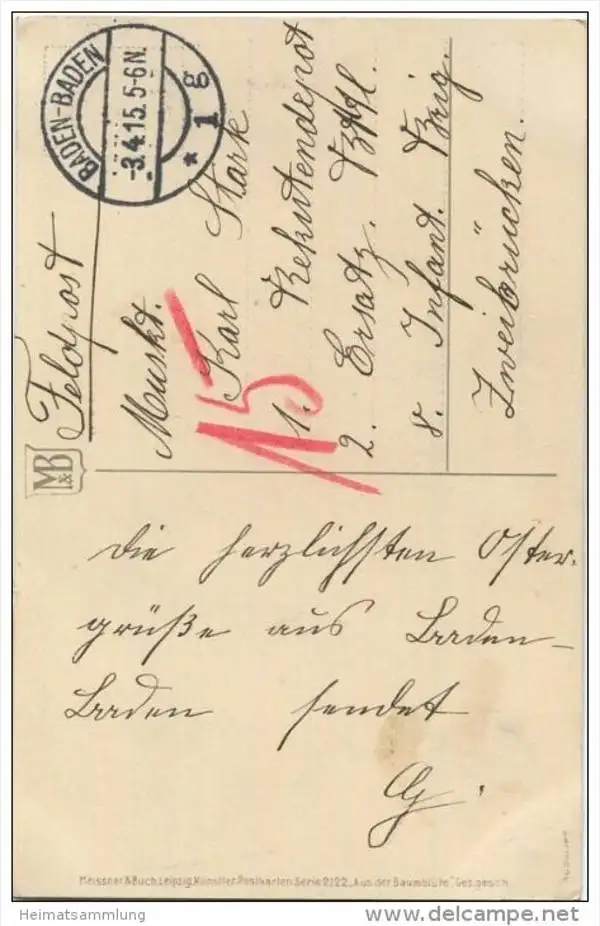 BADEN-BADEN
-3.4.15. 5-6N.
* 1 g
Feldpost
Muskt.
Karl Stark
1. Rekrutendepot
2. Ersatz. Batl.
8. Infant. Brig.
Zweibrücken.
15
M&B
Die herzlichsten Oster-
grüße aus Baden-
Baden sendet
G.
Meissner & Buch, Leipzig, Künstler-Postkarten Serie 2122 „Aus der Baumblüte“, Ges. gesch.
Heimatsammlung
delcampe.net